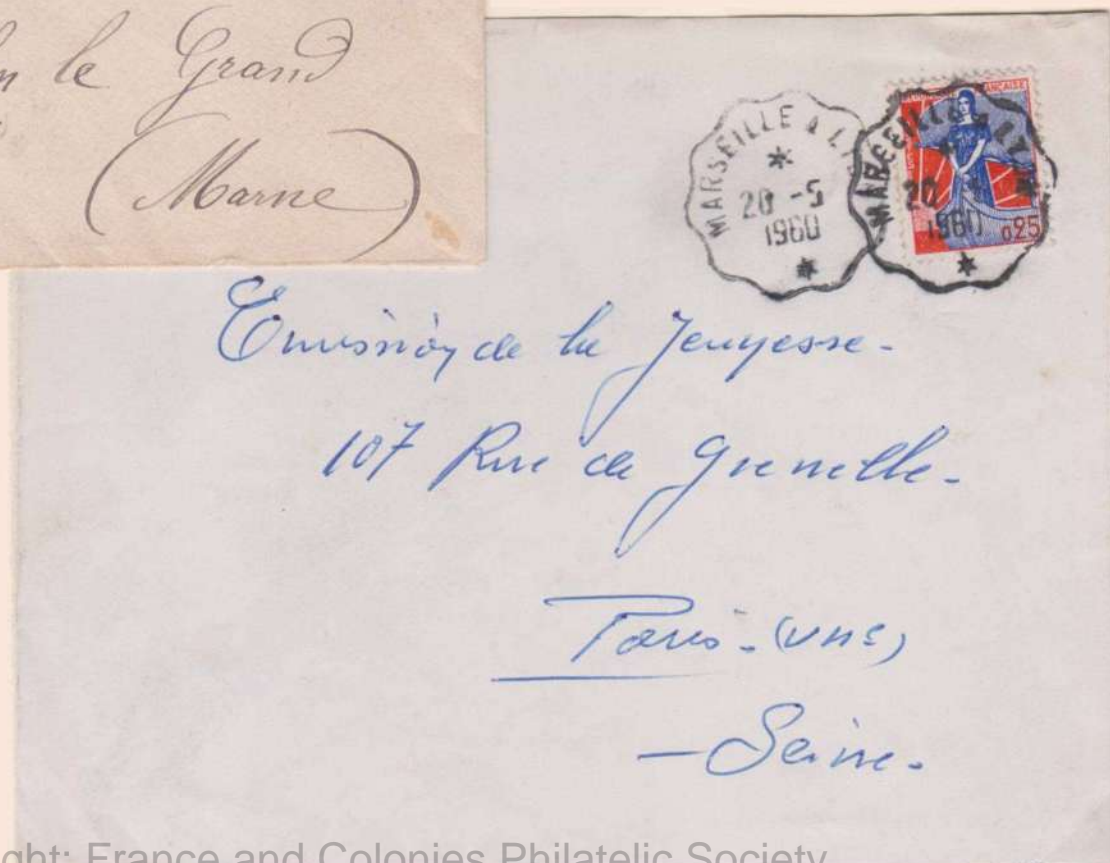 le Grand
(Marne)
MARSEILLE A LY
*
20 -5
1960
*
MARSEILLE A LY
20
1960
*
0,25
Emission de la Jeunesse-
107 Rue de Grenelle-
Paris-(VIIe)
-Seine-
ght: France and Colonies Philatelic Society